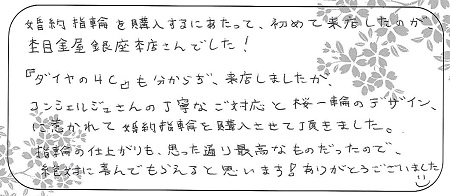 婚約指輪を購入するにあたって、初めて来店したのが、
杢目金屋銀座本店さんでした!
『ダイヤの4C』も分からず、来店しましたが、
コンシェルジュさんの丁寧なご対応と桜一輪のデザイン、
に惹かれて婚約指輪を購入させて頂きました。
指輪の仕上がりも、思った通り最高なものだったので、
絶対に喜んでもらえると思います!ありがとうございました